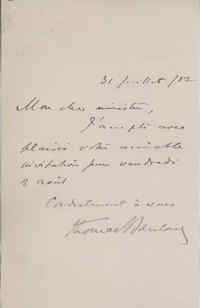 31 juillet /02
Mon cher ministre,
J'accepte avec
plaisir votre aimable
invitation pour vendredi
2 août
Cordialement à vous
Thomas